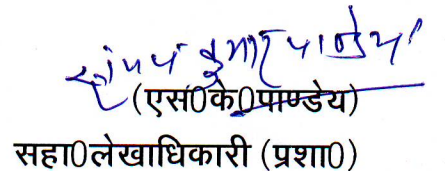 संजय कुमार पाण्डेय
(एस0के0पाण्डेय)
सहा0लेखाधिकारी (प्रशा0)